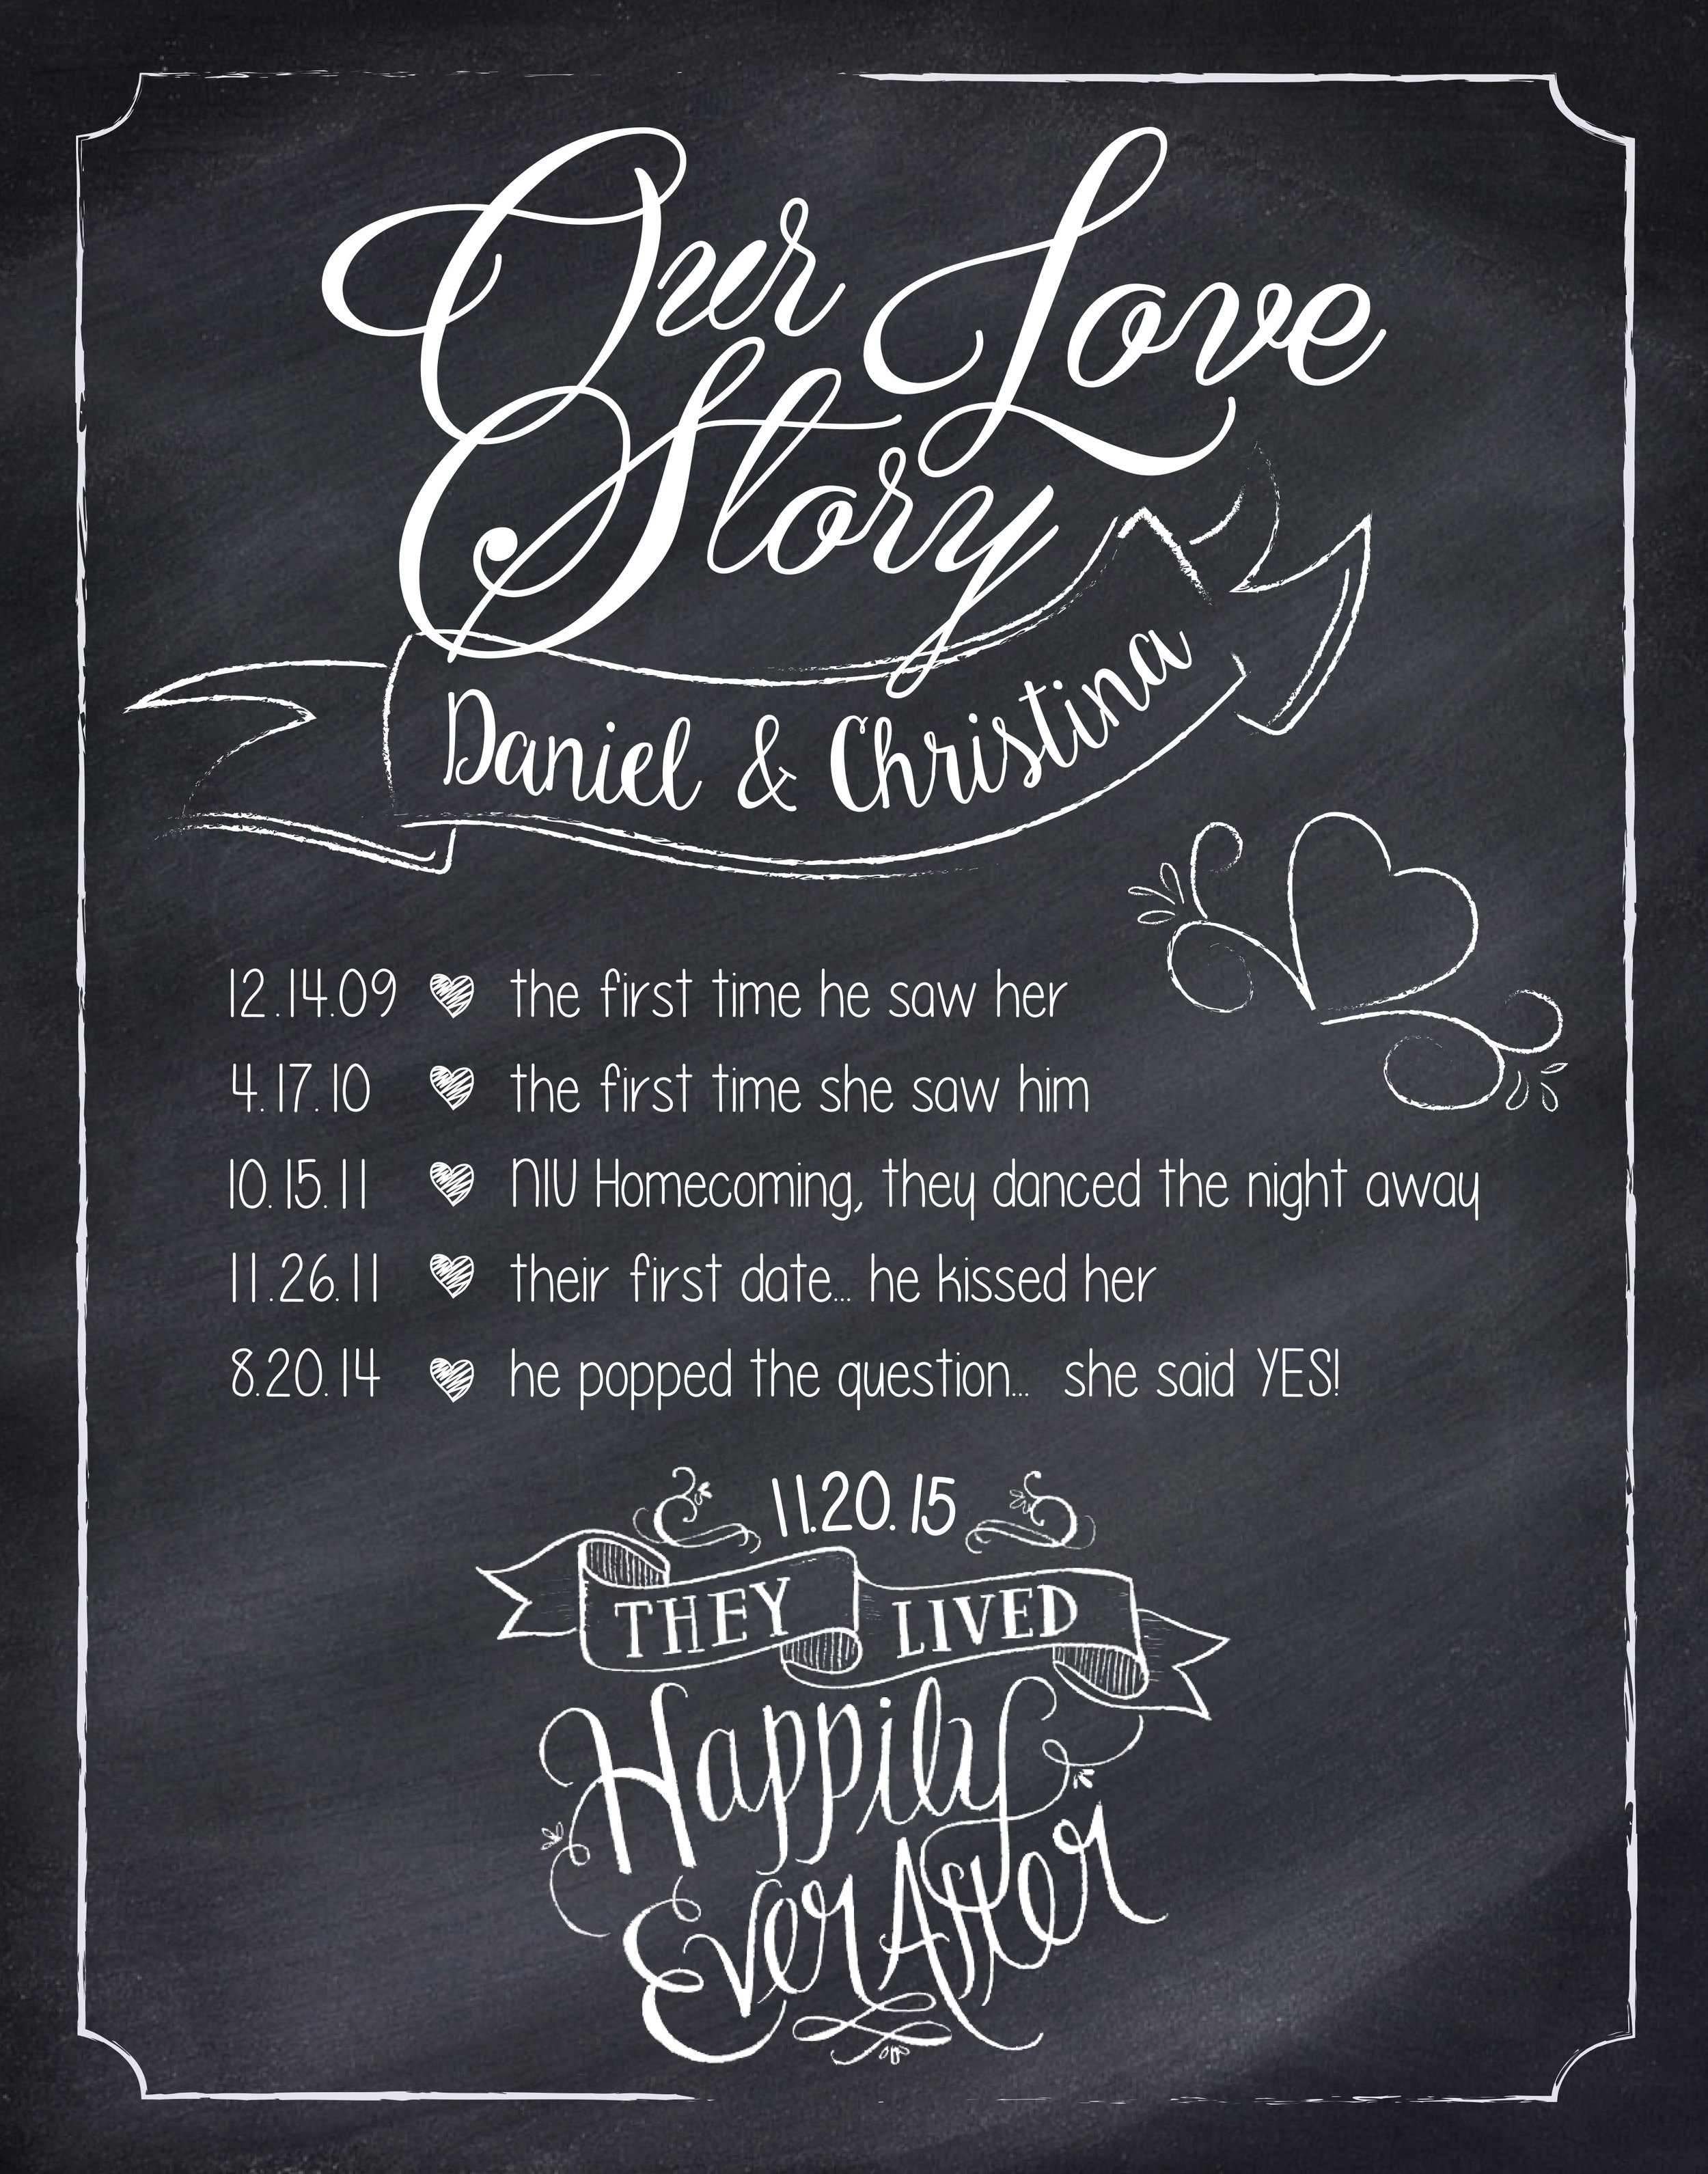 Our Love
Story
Daniel & Christina
12.14.09 the first time he saw her
4.17.10 the first time she saw him
10.15.11 NIU Homecoming, they danced the night away
11.26.11 their first date... he kissed her
8.20.14 he popped the question... she said YES!
11.20.15
THEY LIVED
Happily
Ever After